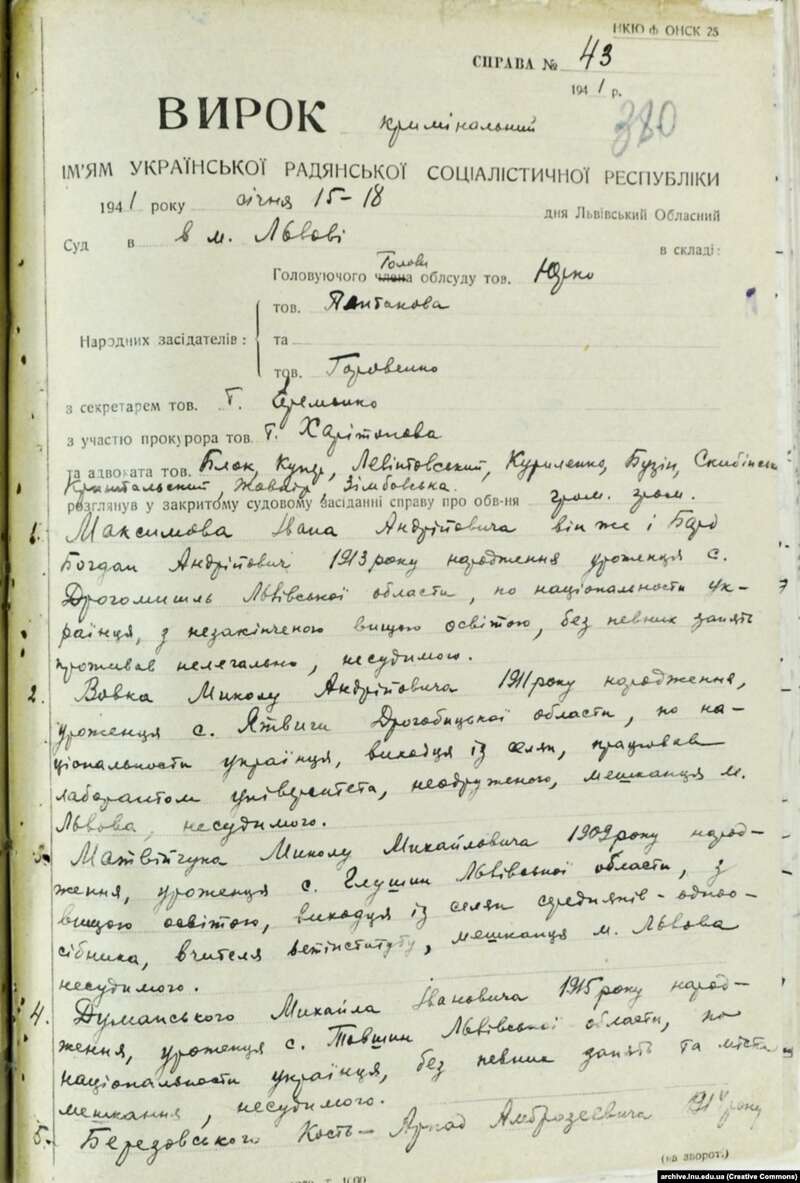 НКЮ Ф ОНСК 25
СПРАВА № 43
194 1 р.
380
ВИРОК кримінальний
ІМ'ЯМ УКРАЇНСЬКОЇ РАДЯНСЬКОЇ СОЦІАЛІСТИЧНОЇ РЕСПУБЛІКИ
194 1 року січня 15-18 дня Львівський Обласний
Суд в в м. Львові в складі:
Голови
Головуючого члена облсуду тов. Юрко
тов.
Народних засідателів: та
тов. Горовенко
з секретарем тов. Т. Єременко
з участю прокурора тов. т. Харітонова
та адвоката тов. Блок, Кунц, Левінтовський, Куриленко, Бузін,
Кришталь­ский, Жовнір, Зімбовська.
розглянув у закритому судовому засіданні справу про обв-ня гром. гром.
1. Максимова Івана Андрійовича він же і
Богдан Андрійович 1913 року народження уроженця с.
Дрогомишль Львівської області, по національности ук-
раїнця, з незакінченою вищою освітою, без певних занять
проживав нелегально, несудимого.
2. Вовка Миколу Андрійовича 1911 року народження,
уроженця с. Ятвиги Дрогобицької області, по на-
ціональности українця, виходця із селян, працював
лаборантом університета, неодруженого, мешканця м.
Львова, несудимого.
3. Матвійчука Миколу Михайловича 1909 року народ-
ження, уроженця с. Глушин Львівської області, з
вищою освітою, виходця із селян середняків - одноо-
сібника, вчителя ветінституту, мешканця м. Львова
несудимого.
4. Думанського Михайла Івановича 1915 року народ-
ження, уроженця с. Товщин Львівської області, по
національности українця, без певних занять та місця
мешкання, несудимого.
5. Березовського Кость - Арпад Амброзеевича року
(на зворот.)
archive.lnu.edu.ua (Creative Commons)